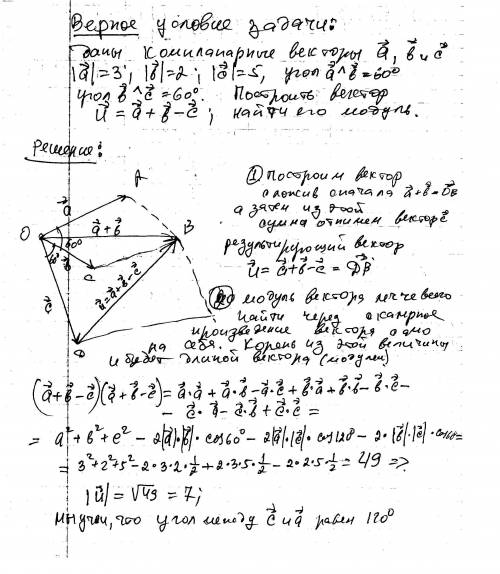 Верное условие задачи:
даны компланарные векторы a⃗, b⃗ и c⃗
|a⃗|=3; |b⃗|=2; |c⃗|=5, угол a⃗^b⃗=60°
угол b⃗^c⃗=60°. Построить вектор
u⃗ = a⃗+b⃗−c⃗; найти его модуль.
Решение:
A
a⃗
O
a⃗+b⃗
B
60°
60°
b⃗
C
c⃗
u⃗=a⃗+b⃗−c⃗
D
① Построим вектор
сложив сначала a⃗+b⃗=OB⃗
а затем из этой
суммы отнимем вектор c⃗
результирующий вектор
u⃗=a⃗+b⃗−c⃗=DB⃗
② модуль вектора легче всего
найти через скалярное
произведение вектора само
на себя. Корень из этой величины
и будет длиной вектора (модулем)
(a⃗+b⃗−c⃗)(a⃗+b⃗−c⃗)=a⃗·a⃗+a⃗·b⃗−a⃗·c⃗+b⃗·a⃗+b⃗·b⃗−b⃗·c⃗−
−c⃗·a⃗−c⃗·b⃗+c⃗·c⃗=
=a²+b²+c²−2|a⃗|·|b⃗|·cos60°−2|a⃗|·|c⃗|·cos120°−2·|b⃗|·|c⃗|·cos60=
=3²+2²+5²−2·3·2·½+2·3·5·½−2·2·5·½=49=>
|u⃗|=√49=7;
мы учли, что угол между c⃗ и a⃗ равен 120°